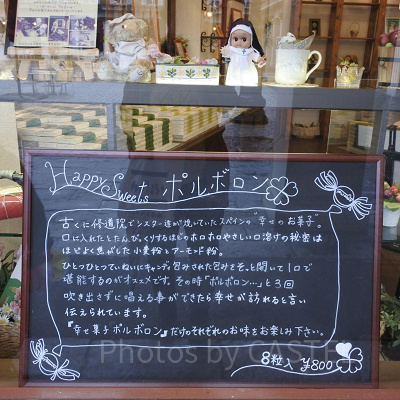 Happy Sweets ポルボロン
古くに修道院でシスター達が焼いていたスペインの"幸せのお菓子"。
口に入れたとたん、びっくりするほどのホロホロやさしい口溶けの秘密は
ほどよく焦がした小麦粉とアーモンド粉。
ひとつひとつていねいにキャンディ包みされた包みをそっと開いて1口で
堪能するのがオススメです。その時「ポルボロン…」と3回
吹き出さずに唱える事ができたら幸せが訪れると言い
伝えられています。
『幸せ菓子ポルボロン』だけのそれぞれのお味をお楽しみ下さい。
8粒入 ¥800
Photos by CASTE